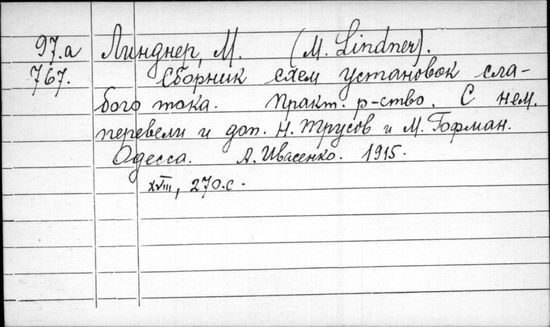 97.а Линднер, М. (M. Lindner).
767. Сборник схем установок сла-
бого тока. Практ. р-ство. С нем.
перевели и доп. Н. Трусов и М. Гофман.
Одесса. А. Ивасенко. 1915.
XVIII, 270.с.